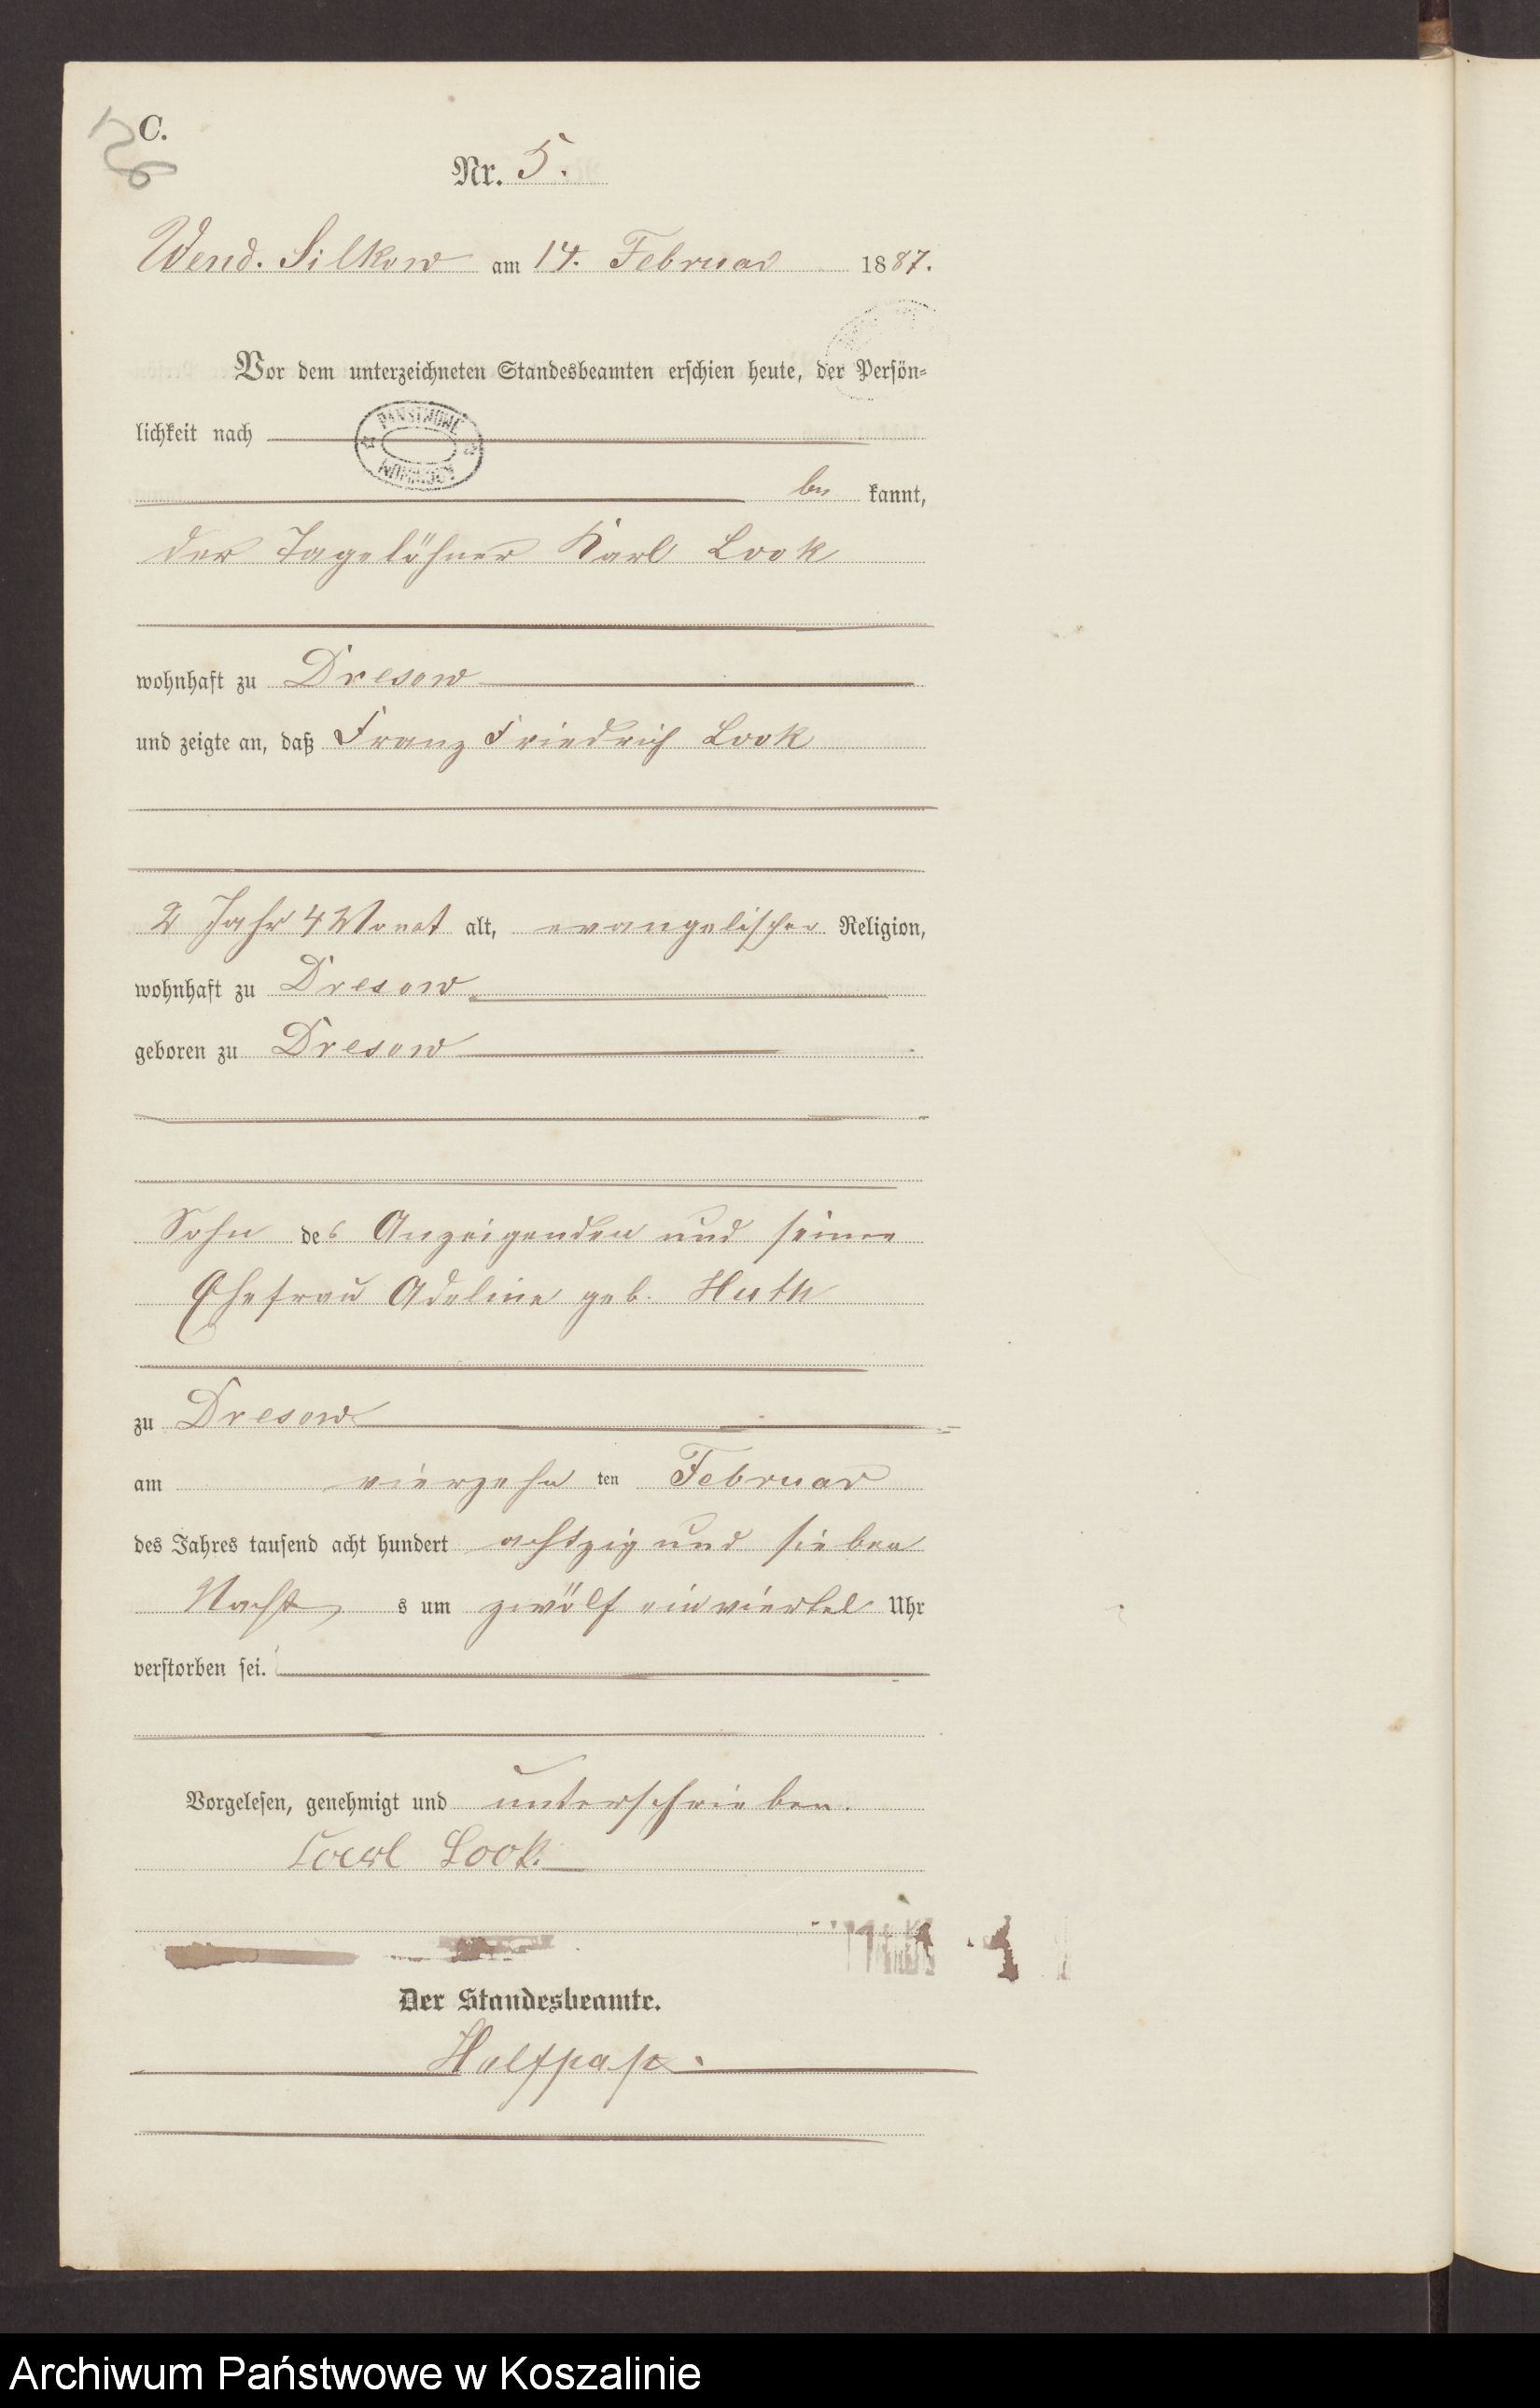 C.
Nr. 5.
Wend. Silkow am 14. Februar 1887.
Vor dem unterzeichneten Standesbeamten erschien heute, der Persön-
lichkeit nach
be kannt,
der Tagelöhner Karl Look
wohnhaft zu Dresow
und zeigte an, daß Franz Friedrich Look
2 Jahr 4 Monat alt, evangelischer Religion,
wohnhaft zu Dresow
geboren zu Dresow
Sohn des Anzeigenden und seiner
Ehefrau Adeline geb. Huth
zu Dresow
am vierzehn ten Februar
des Jahres tausend acht hundert achtzig und sieben
Nacht s um zwölf einviertel Uhr
verstorben sei.
Vorgelesen, genehmigt und unterschrieben.
Carl Look.
Der Standesbeamte.
Halfpap.
Archiwum Państwowe w Koszalinie